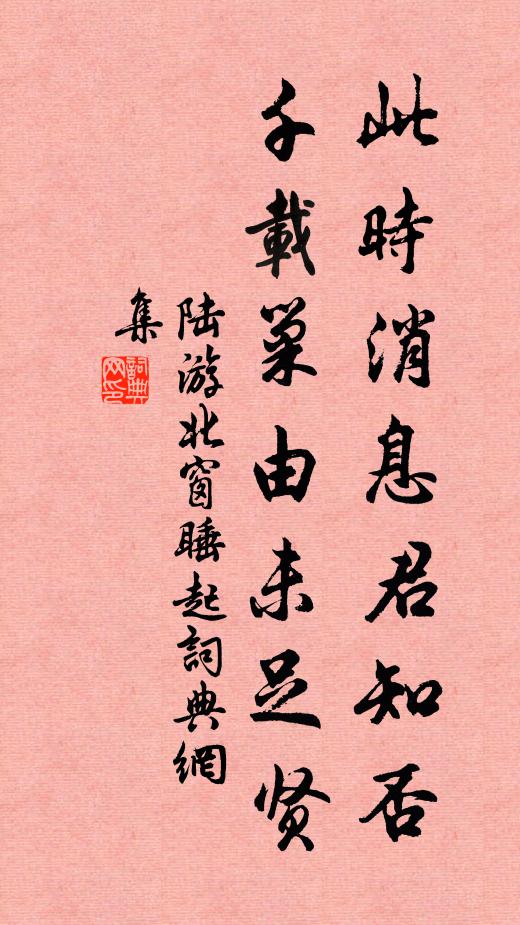 此時消息君知否
千載巢由未足贤
陆游北窗睡起詞典網
集
詞典网印